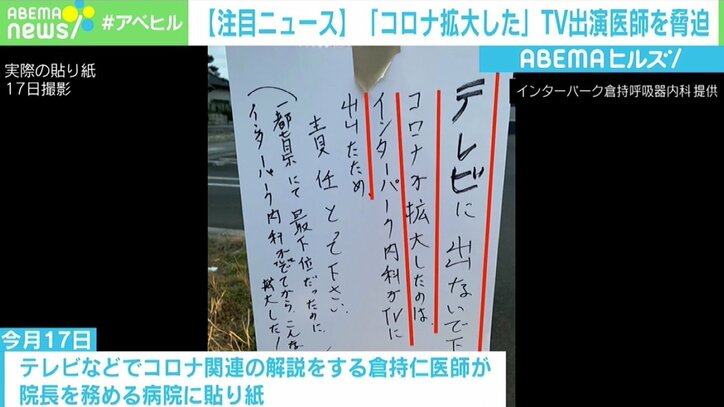 ABEMA
news/
#アベヒル
【注目ニュース】「コロナ拡大した」TV出演医師を脅迫
ABEMAヒルズ
実際の貼り紙
17日撮影
インターパーク倉持呼吸器内科 提供
テレビに出ないで下
コロナが拡大したのは、
インターパーク内科がTVに
出たため、
責任とって下さい。
(一都賁県にて最下位だったのに、
インターパーク内科が出てからこんな
拡大した!
今月17日
テレビなどでコロナ関連の解説をする倉持仁医師が
院長を務める病院に貼り紙